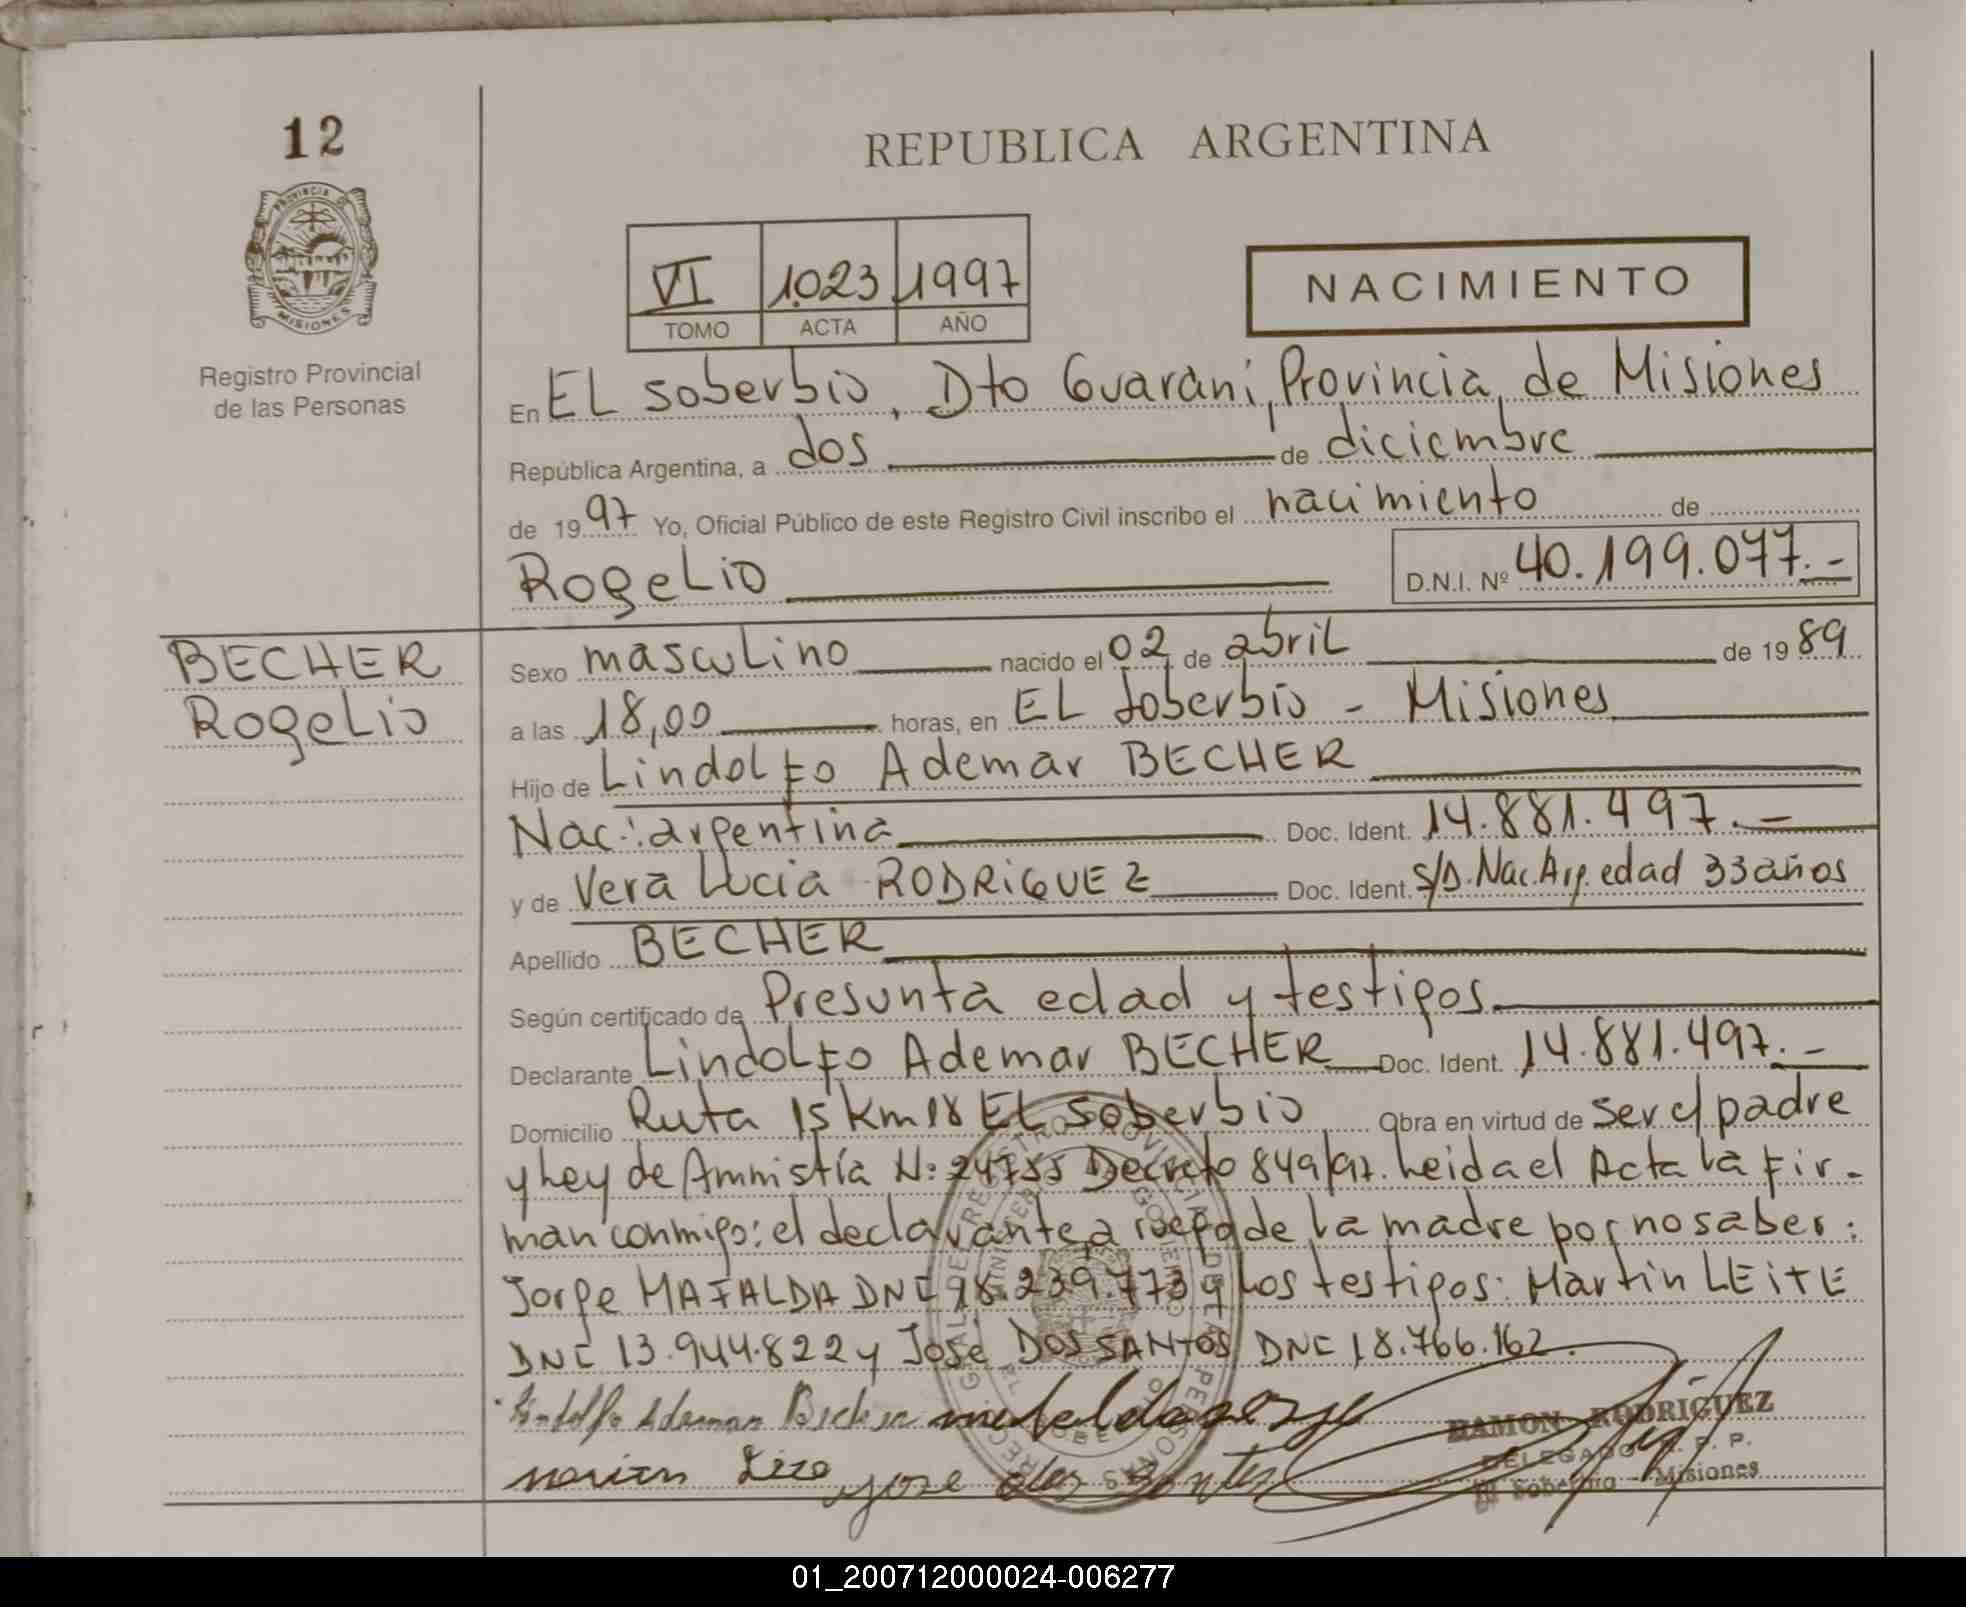 12
PROVINCIA DE
MISIONES
Registro Provincial
de las Personas
REPUBLICA ARGENTINA
VI 1023 1997
TOMO ACTA AÑO
NACIMIENTO
En EL Soberbio, Dto Guaraní, Provincia de Misiones
República Argentina, a dos de diciembre
de 1997 Yo, Oficial Público de este Registro Civil inscribo el nacimiento de
Rogelio D.N.I. Nº 40.199.077.-
BECHER
Rogelio
Sexo masculino nacido el 02 de abril de 1989
a las 18,00 horas, en EL Soberbio - Misiones
Hijo de Lindolfo Ademar BECHER
Nac.: argentina Doc. Ident. 14.881.497.-
y de Vera Lucia RODRIGUEZ Doc. Ident. S/D. Nac. Arg. edad 33 años
Apellido BECHER
Según certificado de Presunta edad y testigos.
Declarante Lindolfo Ademar BECHER Doc. Ident. 14.881.497.-
Domicilio Ruta 15 km 18 EL Soberbio Obra en virtud de ser el padre
y Ley de Amnistía N: 24755 Decreto 849/97. Leida el Acta la fir-
man conmigo: el declarante, a ruego de la madre por no saber:
Jorge MAFALDA DNI 18.239.773 y Los testigos: Martin LEITE
DNI 13.944.822 y José DOS SANTOS DNI 18.766.162.
Lindolfo Ademar Becher
jose dos Santos
RAMON RODRÍGUEZ
DELEGADO R. P. P.
El Soberbio - Misiones
01_200712000024-006277